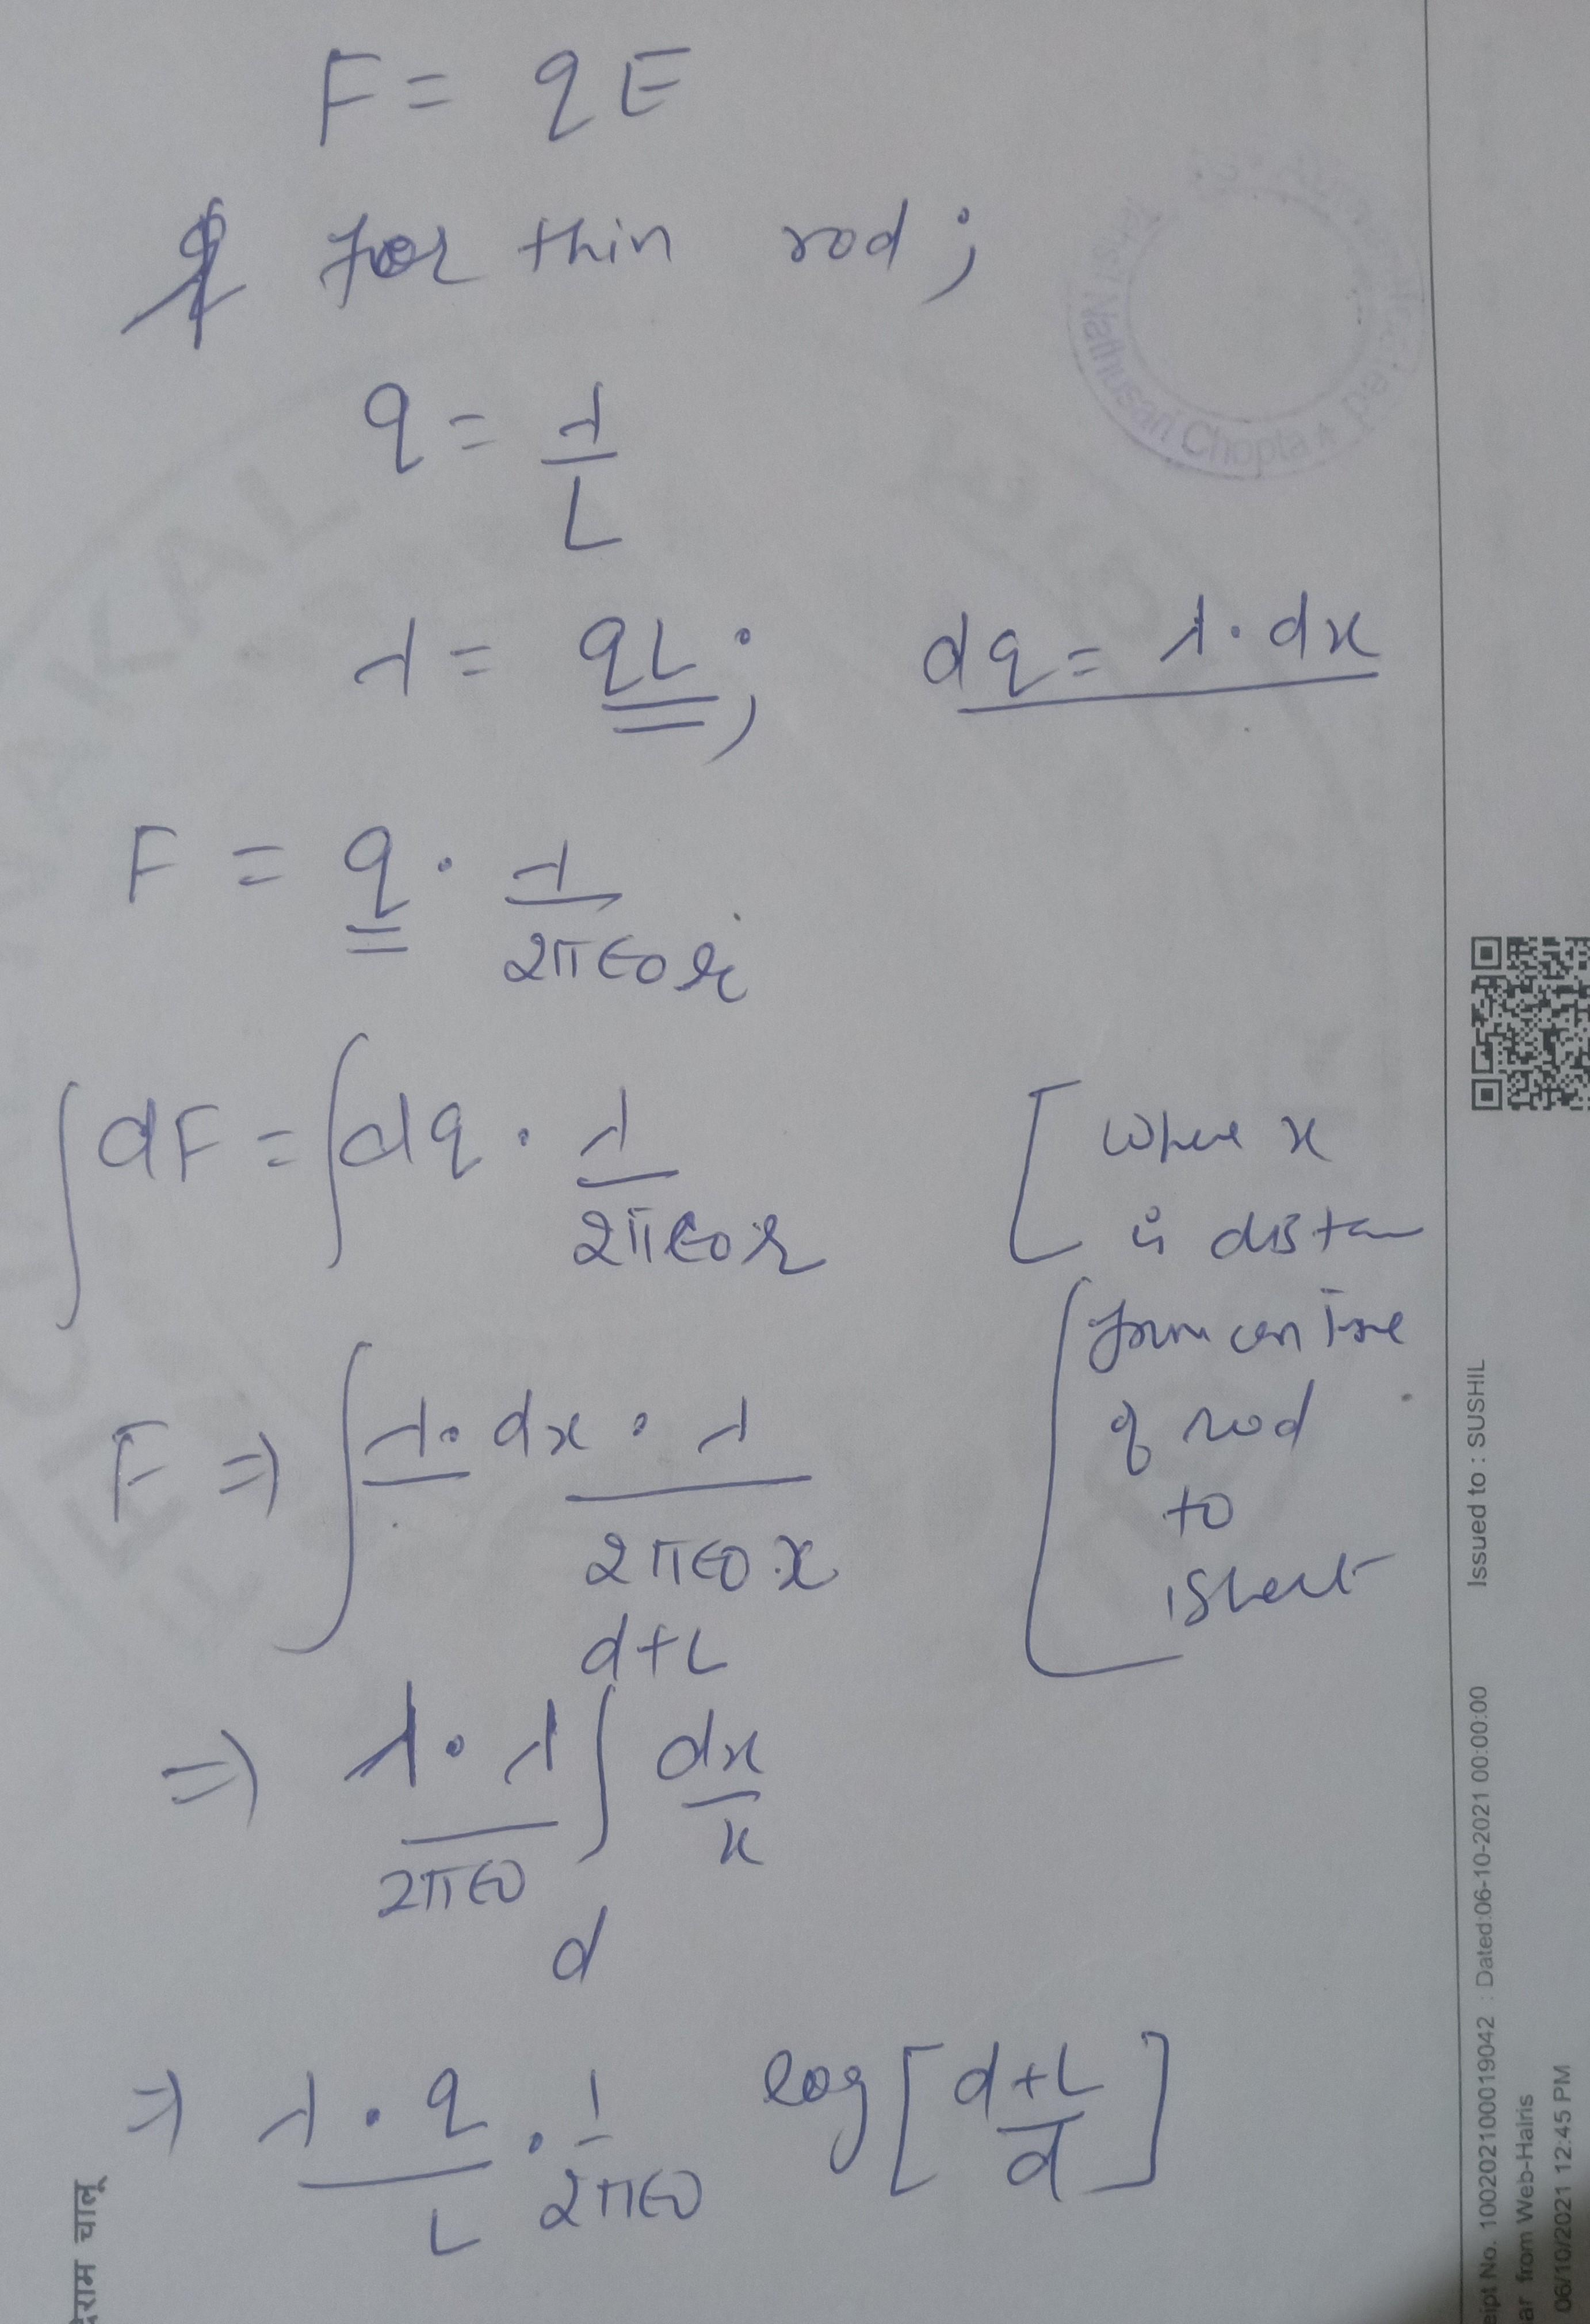 F = qE
for thin rod;
q = λ/L
λ = qL; dq = λ·dx
F = q · λ/2π∈0r
∫dF = ∫dq · λ/2π∈0r
[where x
is distan
from centre
of rod
to
F ⇒ ∫λ·dx · λ/2π∈0x
⇒ λ·λ/2π∈0 ∫ d+L d dx/x
⇒ λ·q/L · 1/2π∈0 log[d+L/d]
Chopta
Issued to : SUSHIL
ipt No. 10020210001904​2 : Dated:06-10-2021 00:00:00
ar from Web-Halris
06/10/2021 12:45 PM
चालू